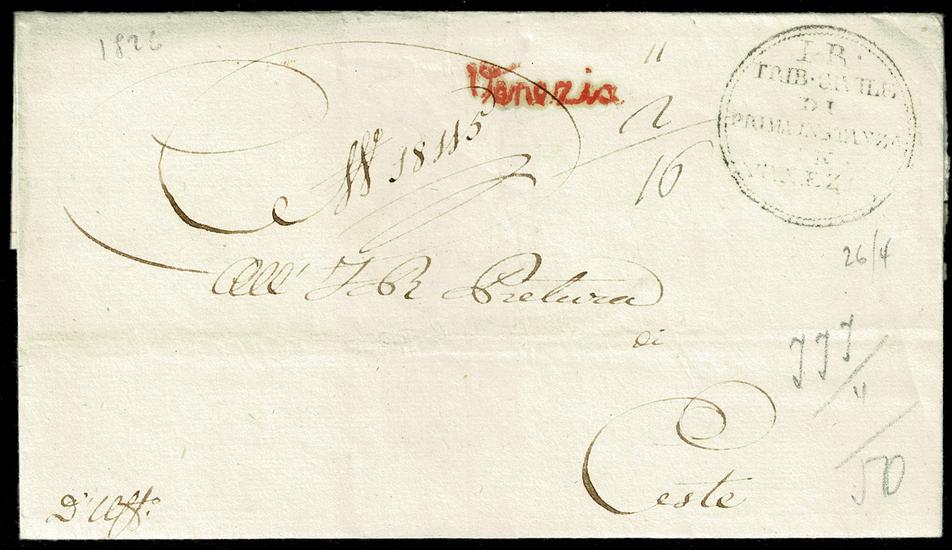 1826
Venezia
N° 18115
"
2
16
I. R.
TRIB. CIVILE
DI
PRIMA INSTANZA
IN
VENEZIA
26/4
All' I R Pretura
di
Este
4
50
D'Uff°